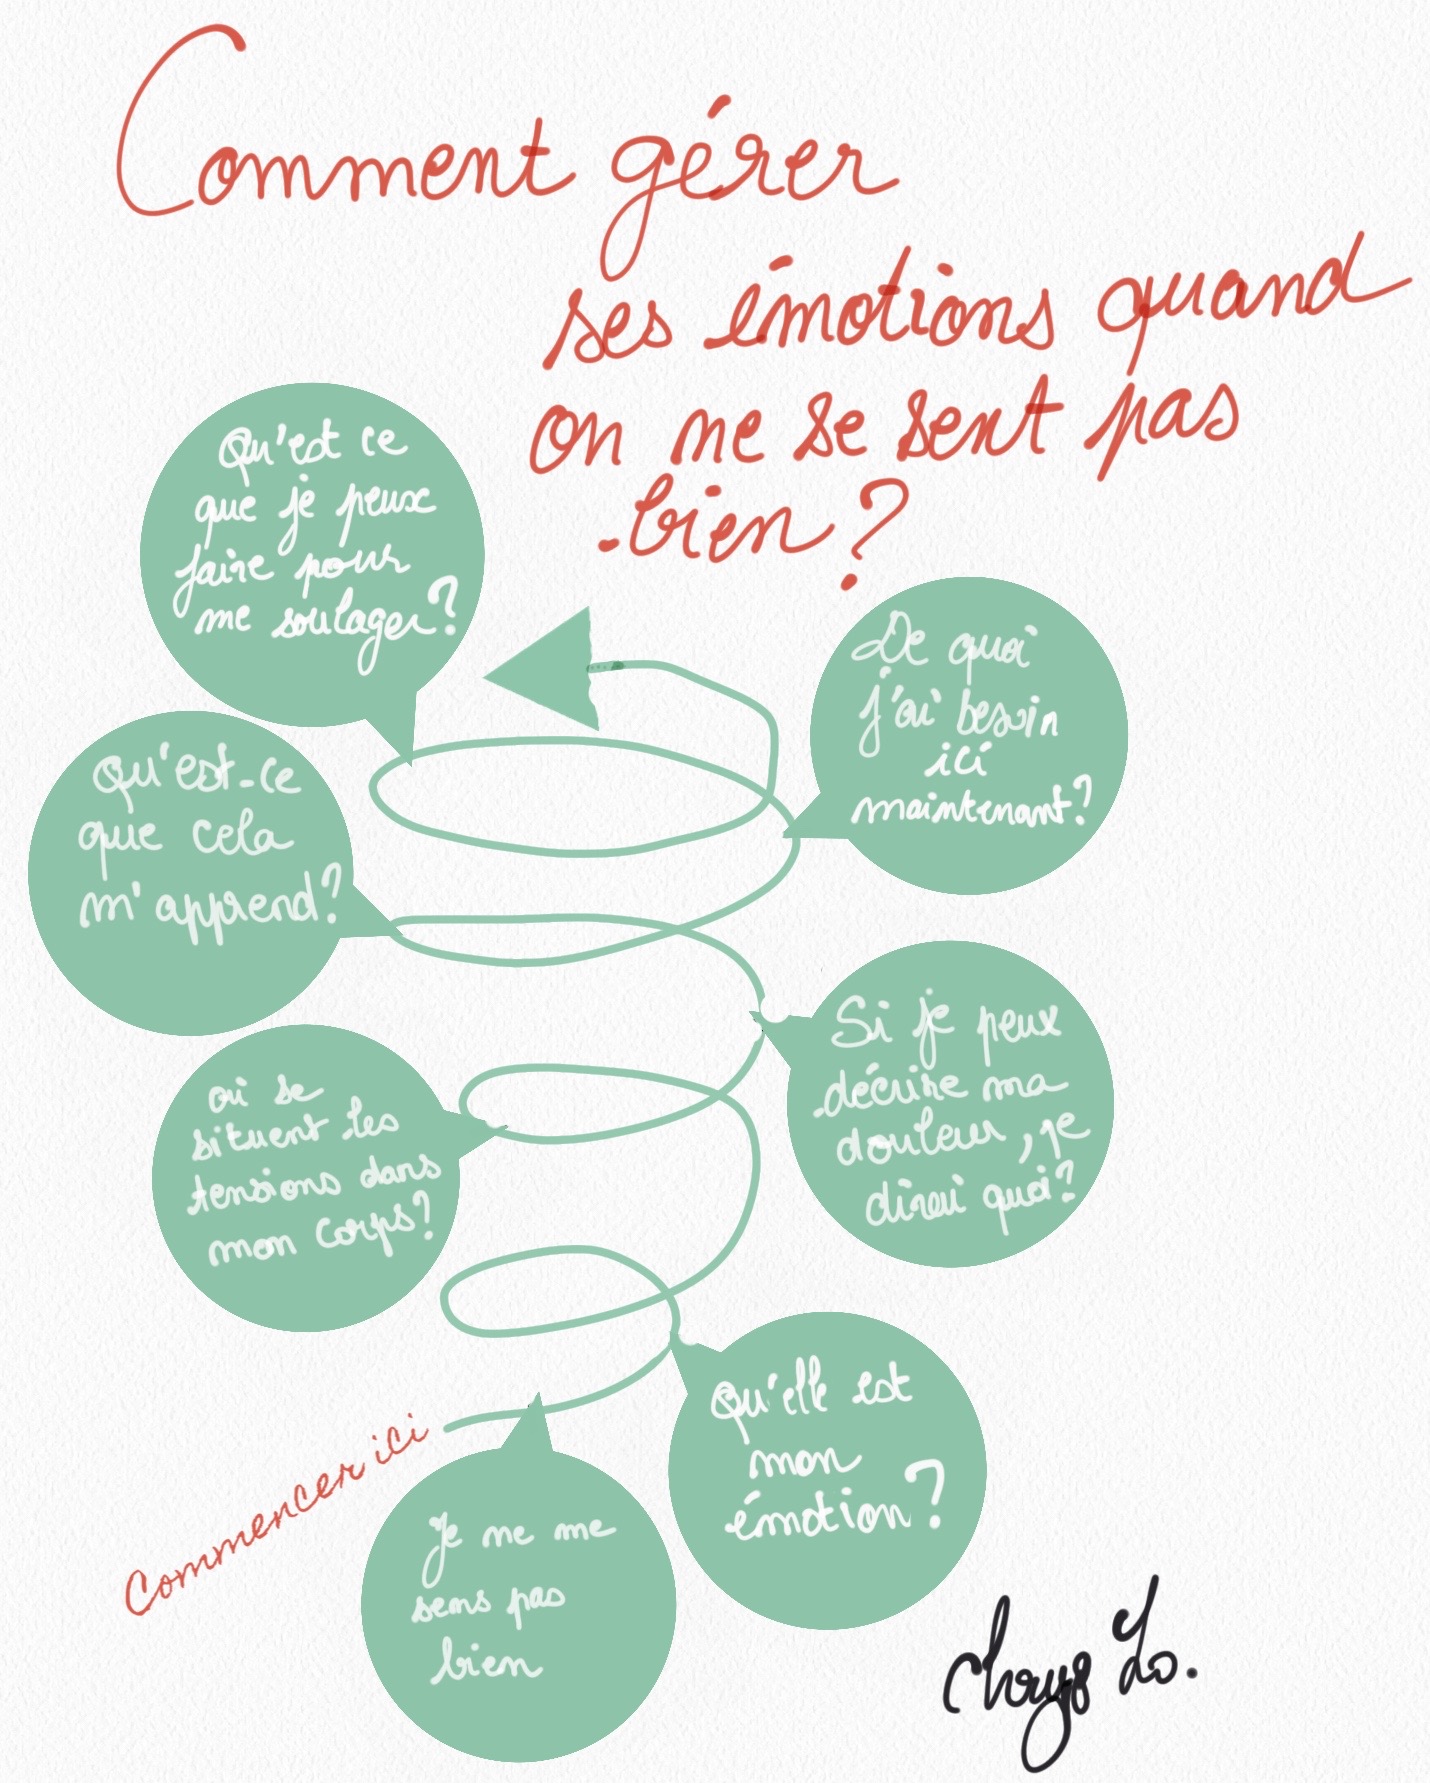 Comment gérer
ses émotions quand
on ne se sent pas
bien ?
Qu'est ce
que je peux
faire pour
me soulager ?
De quoi
j'ai besoin
ici
maintenant ?
Qu'est-ce
que cela
m'apprend ?
Si je peux
décrire ma
douleur, je
dirai quoi ?
où se
situent les
tensions dans
mon corps ?
Qu'elle est
mon
émotion ?
Commencer ici
Je ne me
sens pas
bien
Lo.